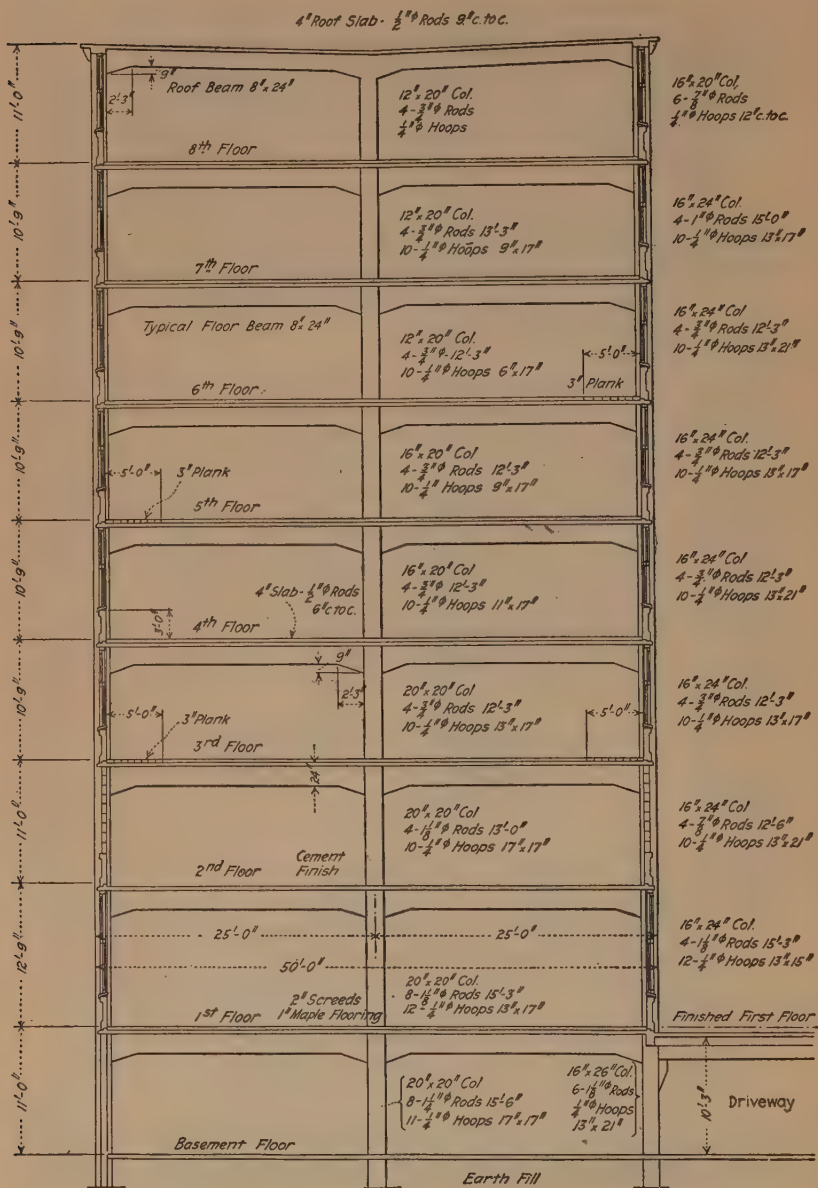 4" Roof Slab - 1/2"ϕ Rods 9" c. to c.
11'-0"
9"
2'-3"
Roof Beam 8" x 24"
12" x 20" Col.
4 - 3/4"ϕ Rods
1/4"ϕ Hoops
16" x 20" Col.
6 - 7/8"ϕ Rods
1/4"ϕ Hoops 12" c. to c.
8th Floor
10'-9"
12" x 20" Col.
4 - 3/4"ϕ Rods 13'-3"
10 - 1/4"ϕ Hoops 9" x 17"
16" x 24" Col.
4 - 1"ϕ Rods 15'-0"
10 - 1/4"ϕ Hoops 13" x 17"
7th Floor
10'-9"
Typical Floor Beam 8" x 24"
12" x 20" Col.
4 - 3/4"ϕ - 12'-3"
10 - 1/4"ϕ Hoops 6" x 17"
5'-0"
3" Plank
16" x 24" Col
4 - 3/4"ϕ Rods 12'-3"
10 - 1/4"ϕ Hoops 13" x 21"
6th Floor
10'-9"
5'-0"
3" Plank
16" x 20" Col.
4 - 3/4"ϕ Rods 12'-3"
10 - 1/4" Hoops 9" x 17"
16" x 24" Col.
4 - 3/4"ϕ Rods 12'-3"
10 - 1/4"ϕ Hoops 13" x 17"
5th Floor
10'-9"
3'-0"
4" Slab - 1/2"ϕ Rods
6" c to c.
16" x 20" Col
4 - 3/4"ϕ 12'-3"
10 - 1/4"ϕ Hoops 11" x 17"
16" x 24" Col
4 - 3/4"ϕ Rods 12'-3"
10 - 1/4"ϕ Hoops 13" x 21"
4th Floor
10'-9"
9"
2'-3"
5'-0"
3" Plank
20" x 20" Col
4 - 3/4"ϕ Rods 12'-3"
10 - 1/4"ϕ Hoops 13" x 17"
5'-0"
16" x 24" Col.
4 - 3/4"ϕ Rods 12'-3"
10 - 1/4"ϕ Hoops 13" x 17"
3rd Floor
24"
11'-0"
20" x 20" Col
4 - 1 1/8"ϕ Rods 13'-0"
10 - 1/4"ϕ Hoops 17" x 17"
16" x 24" Col
4 - 7/8"ϕ Rods 12'-6"
10 - 1/4"ϕ Hoops 13" x 21"
2nd Floor
Cement
Finish
12'-9"
25'-0"
25'-0"
50'-0"
20" x 20" Col.
8 - 1 1/8"ϕ Rods 15'-3"
12 - 1/4"ϕ Hoops 13" x 17"
16" x 24" Col.
4 - 1 1/8"ϕ Rods 15'-3"
12 - 1/4"ϕ Hoops 13" x 15"
2" Screeds
1st Floor 1" Maple Flooring
Finished First Floor
11'-0"
20" x 20" Col
8 - 1 1/4"ϕ Rods 15'-6"
11 - 1/4"ϕ Hoops 17" x 17"
16" x 26" Col.
6 - 1 1/8"ϕ Rods
1/4"ϕ Hoops
13" x 21"
10'-3"
Driveway
Basement Floor
Earth Fill